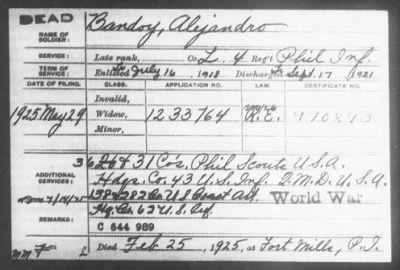 DEAD
NAME OF SOLDIER: Bandoy, Alejandro
SERVICE: Late rank, Co. L, 4 Reg't Phil Inf.
TERM OF SERVICE: Enlisted July 16, 1918 Discharged Sept. 17, 1921
DATE OF FILING. CLASS. APPLICATION NO. LAW. CERTIFICATE NO.
Invalid,
1925 May 29 Widow, 1233764 970893
Minor,
ADDITIONAL SERVICES: & 31 Cos. Phil Scouts U.S.A.
Hdqs. Co. 43 U.S. Inf. Q.M.D. U.S.A.
& 282 Co. U.S Coast Art World War
Hq. Co. U.S.
C 644 989
Died Feb 25, 1925, at Fort Mills, P.I.